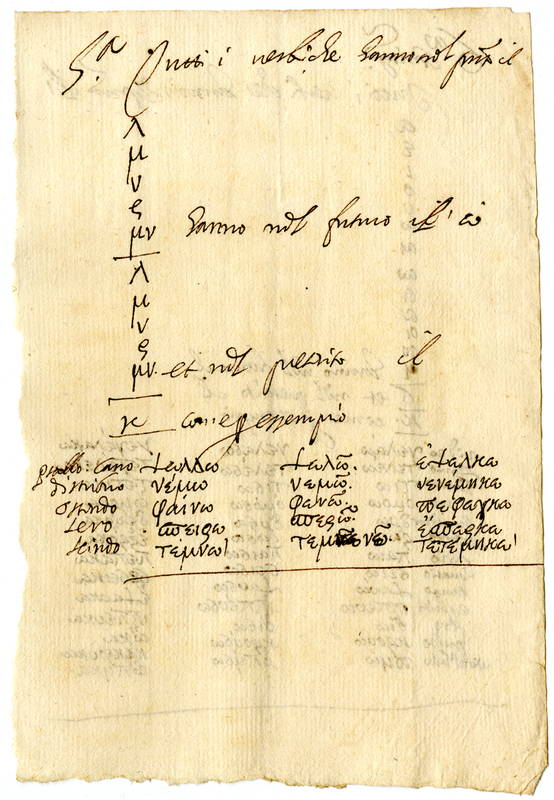 5.ª Tutti i verbi che hanno nel pnte il
λ
μ
ν
ρ
μν hanno nel futuro il ῶ
λ
μ
ν
ρ
μν. et nel preterito il
κ come p essempio
psallo. cano ψαλλω ψαλῶ. ἐψαλκα
distribuo νεμω νεμῶ. νενέμηκα
ostendo φαίνω φανῶ πεφαγκα
sero σπειρω σπερῶ. ἐσπαρκα
scindo τεμνω τεμῶ τετεμηκα